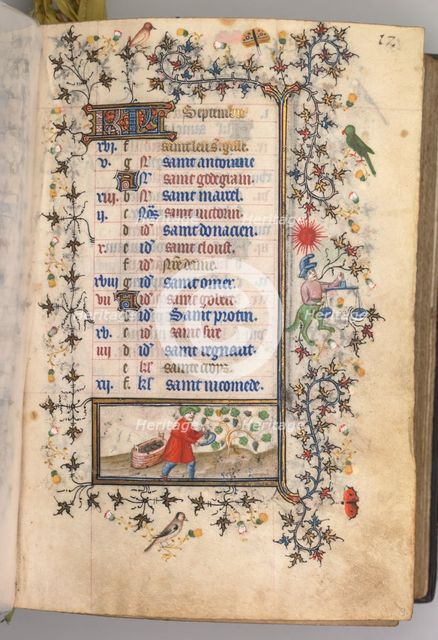 17.
KL Septembre
xvi. f saint leu s. gile.
v. g N saint antoinne
A N saint godegrain
xiii. b N saint marcel.
ii. c Nōs saint victorin
d id saint donacien
x. e id saint cloust.
f id Nr̄e dame.
xviii g id saint omer.
vii A id saint
b id Saint protin
xv. c id saint
iiii d id saint regnaut.
e kl sainte croys
xii. f. kl saint nicomede.
Heritage
Heritage
Heritage
Heritage